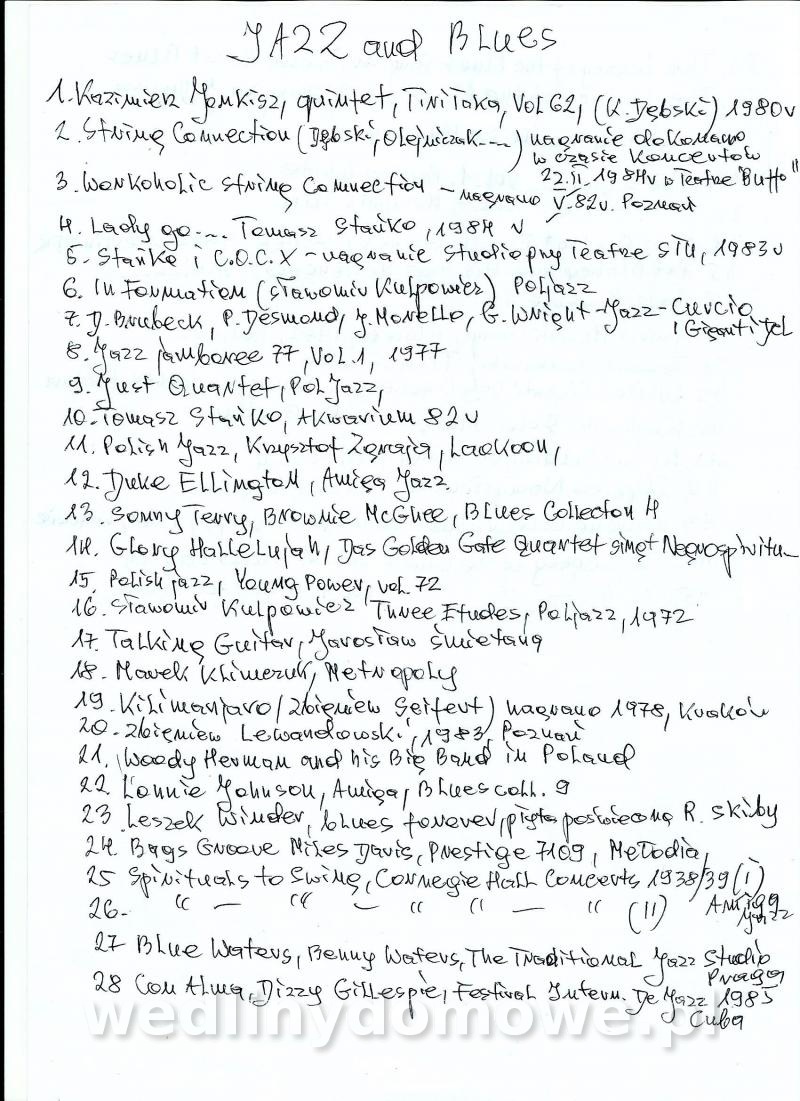 JAZZ and BLues
1. Kazimierz Jonkisz, quintet, TiriTaka, Vol 62, (K. Dębski) 1980r
2. String Connection (Dębski, Olejniczak....) nagranie dokonano
w czasie Koncertów
22.II.1984r w Teatrze "Buffo"
3. Workoholic string Connection - nagrano V.82r. Poznań
4. Lady go.... Tomasz Stańko, 1984 r
5. Stańko i C.O.C.X - nagranie studio Teatre STU, 1983r
6. In Formation (Sławomir Kulpowicz) Poljazz
7. D. Brubeck, P. Desmond, J. Morello, G. Wright - Jazz - Curcio
i Giganti del
8. Jazz jamboree 77, Vol. 1, 1977
9. Just Quartet, Pol Jazz,
10. Tomasz Stańko, Akwarium 82r
11. Polish Jazz, Krzysztof Zgraja, Laokoon,
12. Duke Ellington, Amiga Jazz
13. Sonny Terry, Brownie McGhee, Blues Collecton 4
14. Glory Hallelujah, Das Golden Gate Quartet singt Negrospiritu
15. Polish jazz, Young Power, vol. 72
16. Sławomir Kulpowicz Three Etudes, Poljazz, 1972
17. Talking Guitar, Jarosław Śmietana
18. Marek Klimczuk, Metropoly
19. Kilimanjaro (Zbigniew Seifert) nagrano 1978, Kraków
20. Zbigniew Lewandowski, 1983, Poznań
21. Woody Herman and his Big Band in Poland
22. Lonnie Johnson, Amiga, Blues coll. 9
23. Leszek Winder, blues forever, płyta poświęcona R. Skiby
24. Bags Groove Miles Davis, Prestige 7109, Melodia,
25 Spirituals to Swing, Carnegie Hall Concerts 1938/39 (I)
26. " — " — " " — " (II) Amiga
Jazz
27 Blue Waters, Benny Waters, The Traditional Jazz Studio
Praga
28 Con Alma, Dizzy Gillespie, Festival Intern. De Jazz 1985
Cuba
wedlinydomowe.pl